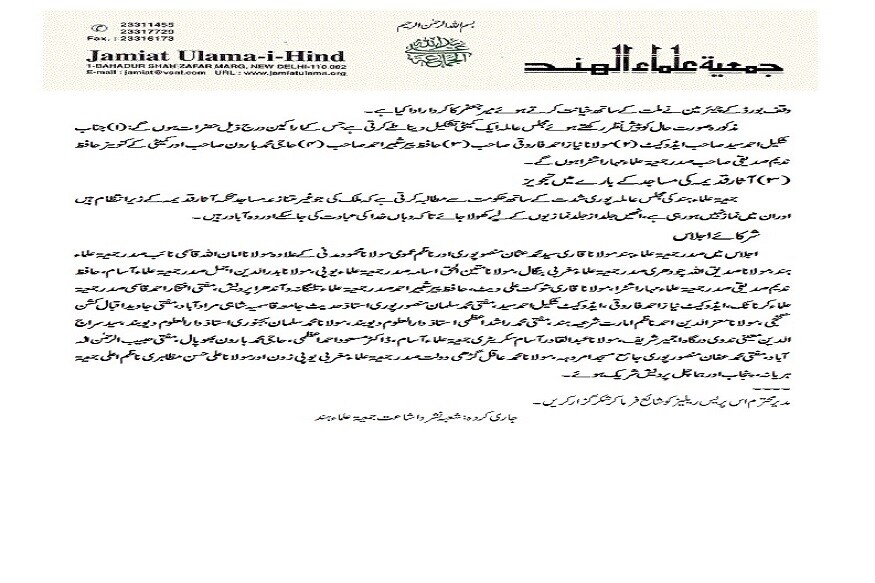 23311455
23317729
Fax. : 23316173
بسم اللہ الرحمٰن الرحیم
Jamiat Ulama-i-Hind
1-BAHADUR SHAH ZAFAR MARG, NEW DELHI-110 002
E-mail : jamiat@vsnl.com URL : www.jamiatulama.org
جمعية علماء الهند
وقف بورڈ کے چیئرمین نے ملت کے ساتھ خیانت کرتے ہوئے میر جعفر کا کردار ادا کیا ہے۔
مذکورہ صورت حال کو پیش نظر رکھتے ہوئے مجلس عاملہ ایک کمیٹی تشکیل دینا طے کرتی ہے جس کے اراکین درج ذیل حضرات ہوں گے: (۱) جناب
شکیل احمد سید صاحب ایڈوکیٹ (۲) مولانا نیاز احمد فاروقی صاحب (۳) حافظ پیر شبیر احمد صاحب (۴) حاجی محمد ہارون صاحب اور کمیٹی کے کنوینر حافظ
ندیم صدیقی صاحب صدر جمعیۃ علماء مہاراشٹرا ہوں گے۔
(۳) آثار قدیمہ کی مساجد کے بارے میں تجویز
جمعیۃ علماء ہند کی مجلس عاملہ پوری شدت کے ساتھ حکومت سے مطالبہ کرتی ہے کہ ملک کی جو غیر متنازعہ مساجد محکمہ آثار قدیمہ کے زیر انتظام ہیں
اور ان میں نماز نہیں ہو رہی ہے، انھیں جلد از جلد نمازیوں کے لیے کھولا جائے تاکہ وہاں خدا کی عبادت کی جا سکے اور وہ آباد رہیں۔
شرکائے اجلاس
اجلاس میں صدر جمعیۃ علماء ہند مولانا قاری سید محمد عثمان منصورپوری اور ناظم عمومی مولانا محمود مدنی کے علاوہ مولانا امان اللہ قاسمی نائب صدر جمعیۃ علماء
ہند، مولانا صدیق اللہ چودھری صدر جمعیۃ علماء مغربی بنگال، مولانا متین الحق اسامہ صدر جمعیۃ علماء یوپی، مولانا بدرالدین اجمل صدر جمعیۃ علماء آسام، حافظ
ندیم صدیقی صدر جمعیۃ علماء مہاراشٹرا، مولانا قاری شوکت علی ویٹ، حافظ پیر شبیر احمد صدر جمعیۃ علماء تلنگانہ و آندھرا پردیش، مفتی افتخار احمد قاسمی صدر جمعیۃ
علماء کرناٹک، ایڈوکیٹ نیاز احمد فاروقی، ایڈوکیٹ شکیل احمد سید، مفتی محمد سلمان منصورپوری استاذ حدیث جامعہ قاسمیہ شاہی مرادآباد، مفتی جاوید اقبال کشن
گنجی، مولانا معزالدین احمد ناظم امارت شرعیہ ہند، مفتی محمد راشد اعظمی استاذ دارالعلوم دیوبند، مولانا محمد سلمان بجنوری استاذ دارالعلوم دیوبند، سید سراج
الدین معینی ندوی درگاہ اجمیر شریف، مولانا عبدالقادر آسام سکریٹری جمعیۃ علماء آسام، ڈاکٹر مسعود احمد اعظمی، حاجی محمد ہارون بھوپال، مفتی حبیب الرحمٰن الہ
آباد، مفتی محمد عفان منصورپوری جامع مسجد امروہہ، مولانا محمد عاقل گڑھی دولت صدر جمعیۃ علماء مغربی یوپی زون اور مولانا علی حسن مظاہری ناظم اعلیٰ جمعیۃ
ہریانہ، پنجاب اور ہماچل پردیش شریک ہوئے۔
----
مدیر محترم اس پریس ریلیز کو شائع فرما کر شکر گزار کریں۔
جاری کردہ: شعبہ نشر و اشاعت جمعیۃ علماء ہند